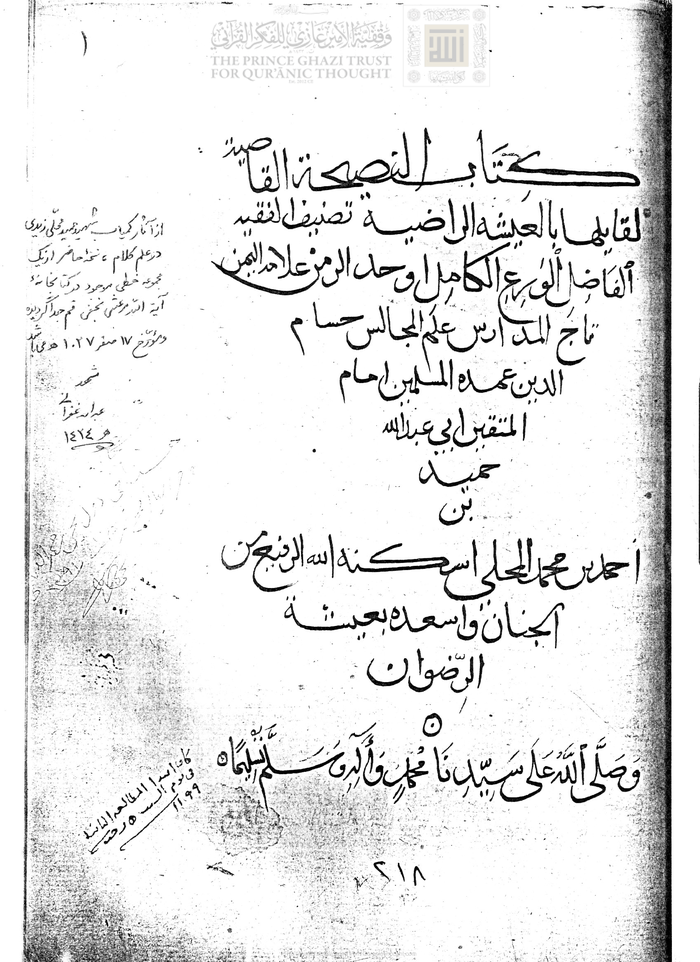 وقفية الأمير غازي للفكر القرآني
THE PRINCE GHAZI TRUST
FOR QUR'ANIC THOUGHT
١
كتاب النصيحة القاضية
لقابلها بالعيشه الراضية تصنيف الفقيه
الفاضل الورع الكامل اوحد الزمن علامه اليمن
تاج المدارس علم المجالس حسام
الدين عمده المسلمين امام
المتقين ابي عبدالله
حميد
بن
احمد بن محمد المحلي اسكنه الله الرفيع من
الجنان واسعده بعيشة
الرضوان
وَصَلَّى اللَّهُ عَلَى سَيِّدِنَا مُحَمَّدٍ وَآلِهِ وَسَلَّمَ تَسْلِيمًا
٢١٨
از آثار شهید حمید محلی زیدی
در علم کلام، نسخهٔ حاضر از یک
مجموعه خطی موجود در کتابخانهٔ
آیة الله مرعشی نجفی قم
ومؤرخ ١٧ صفر ١٠٢٧
مشهد
١٤١٤
كان ابتدا المطالعه الثانية
في يوم السبت ٥ رجب
١١٩٩